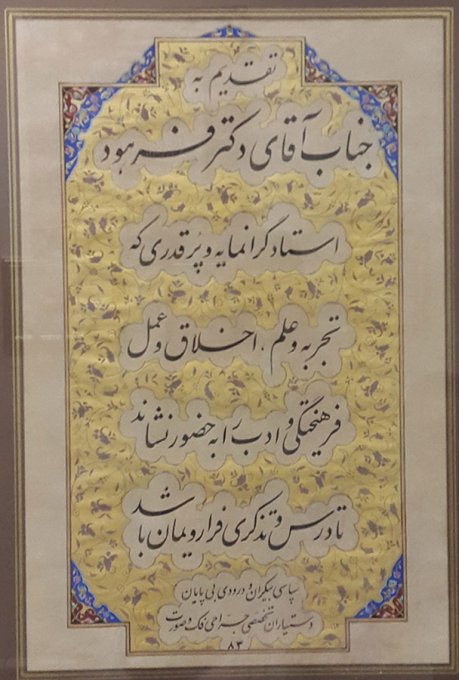 تقدیم به
جناب آقای دکتر فرهود
استاد گرانمایه و پُر قدری که
تجربه و علم، اخلاق و عمل
فرهیختگی و ادب را به حضور نشاند
تا درس و تذکری فرارویمان باشد
سپاسی بیکران و درودی بی پایان
دستیاران تخصصی جراحی فک و صورت
۸۳